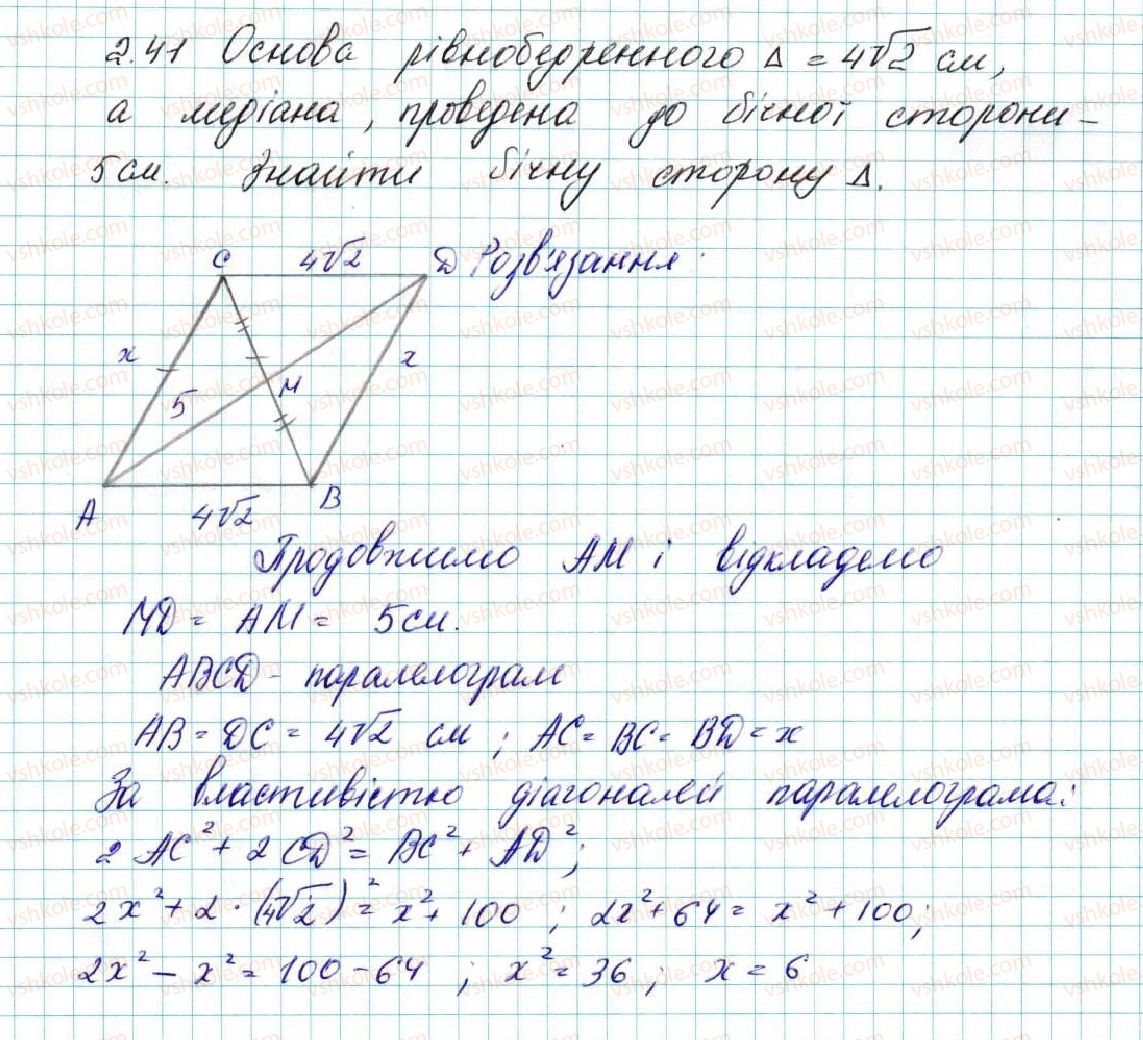 2.41 Основа рівнобедренного Δ = 4√2 см,
а медіана, проведена до бічної сторони -
5 см. Знайти бічну сторону Δ.
C 4√2 D Розв'язання:
x 5 M x
A 4√2 B
Продовжимо AM і відкладемо
MD = AM = 5 см.
ABCD - паралелограм
AB = DC = 4√2 см ; AC = BC = BD = x
За властивістю діагоналей паралелограма:
2 AC² + 2 CD² = BC² + AD²;
2x² + 2 · (4√2)² = x² + 100 ; 2x² + 64 = x² + 100;
2x² - x² = 100 - 64 ; x² = 36; x = 6